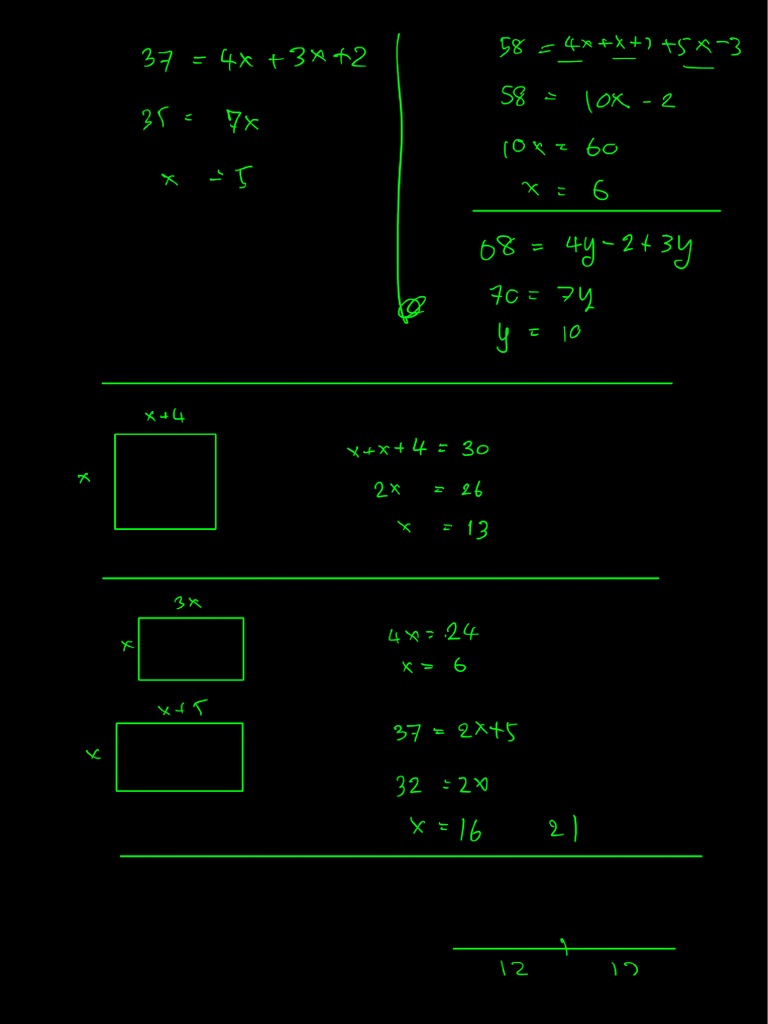 37 = 4x + 3x + 2
35 = 7x
x = 5
58 = 4x + x + 1 + 5x - 3
58 = 10x - 2
10x = 60
x = 6
68 = 4y - 2 + 3y
70 = 7y
y = 10
x+4
x
x + x + 4 = 30
2x = 26
x = 13
3x
x
4x = 24
x = 6
x+5
x
37 = 2x+5
32 = 2x
x = 16 21
12 12